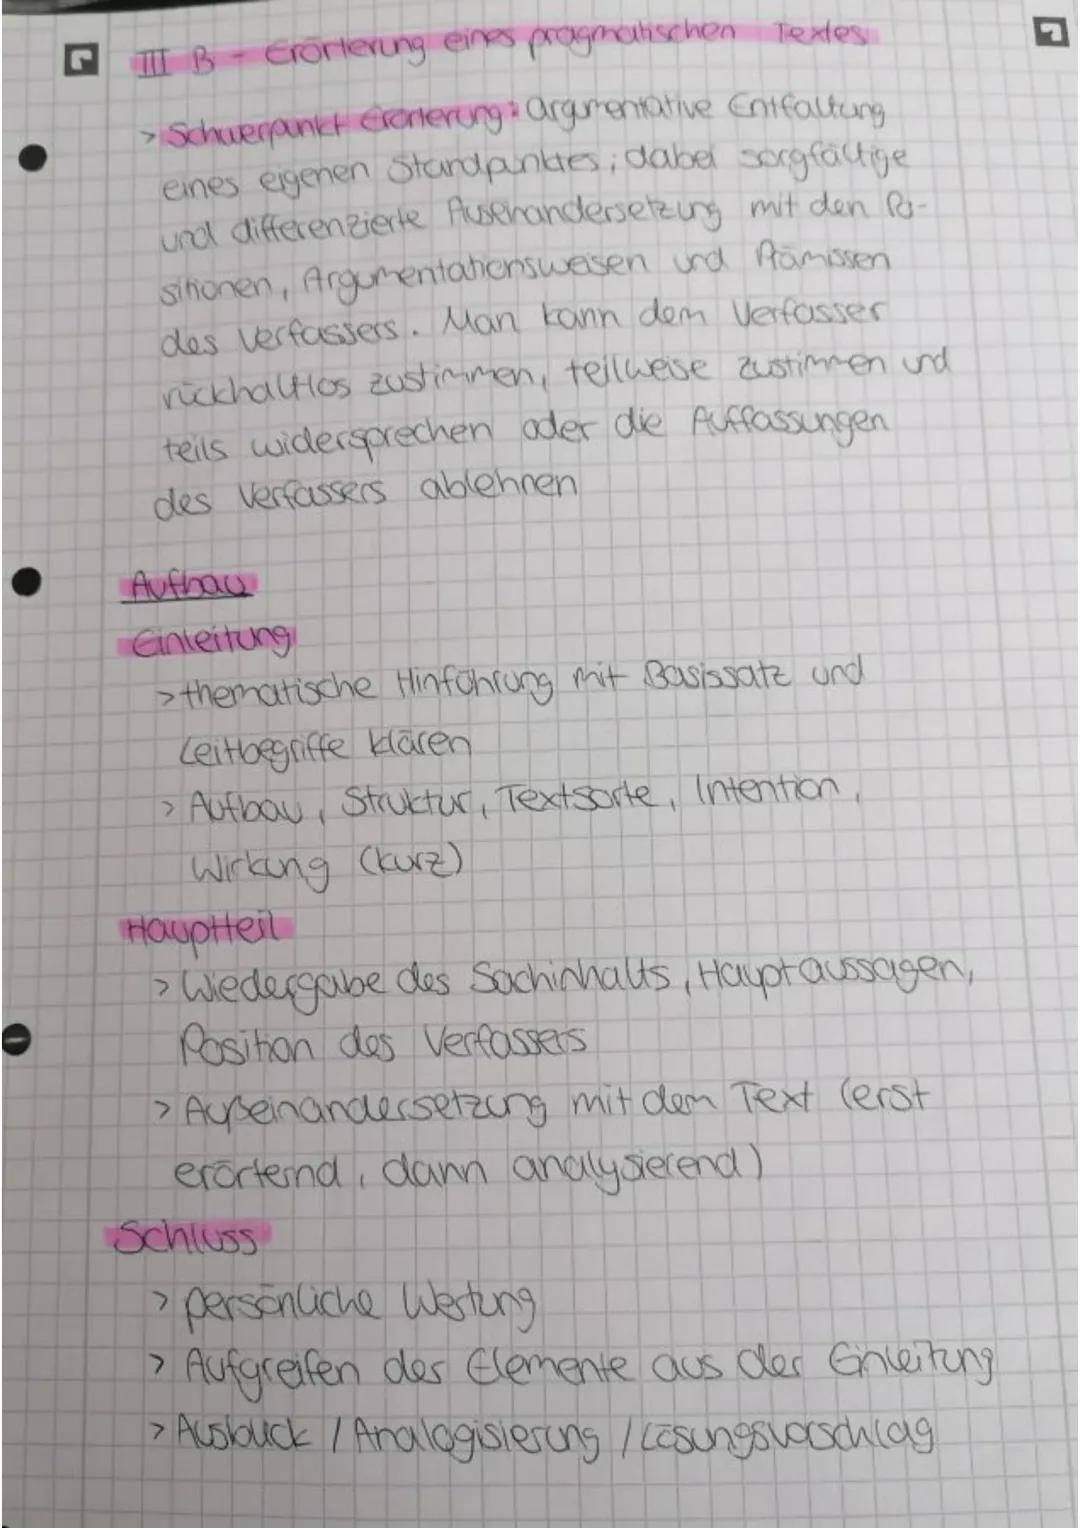 III B - Erörterung eines pragmatischen Textes
> Schwerpunkt Erörterung: argumentative Entfaltung
eines eigenen Standpunktes; dabei sorgfältige
und differenzierte Auseinandersetzung mit den Po-
sitionen, Argumentationsweisen und Prämissen
des Verfassers. Man kann dem Verfasser
rückhaltlos zustimmen, teilweise zustimmen und
teils widersprechen oder die Auffassungen
des Verfassers ablehnen
Aufbau
Einleitung
> thematische Hinführung mit Basissatz und
Leitbegriffe klären
> Aufbau, Struktur, Textsorte, Intention,
Wirkung (kurz)
Hauptteil
> Wiedergabe des Sachinhalts, Hauptaussagen,
Position des Verfassers
> Außeinandersetzung mit dem Text (erst
erörternd, dann analysierend)
Schluss
> persönliche Wertung
> Aufgreifen der Elemente aus der Einleitung
> Ausblick / Analogisierung / Lösungsvorschlag